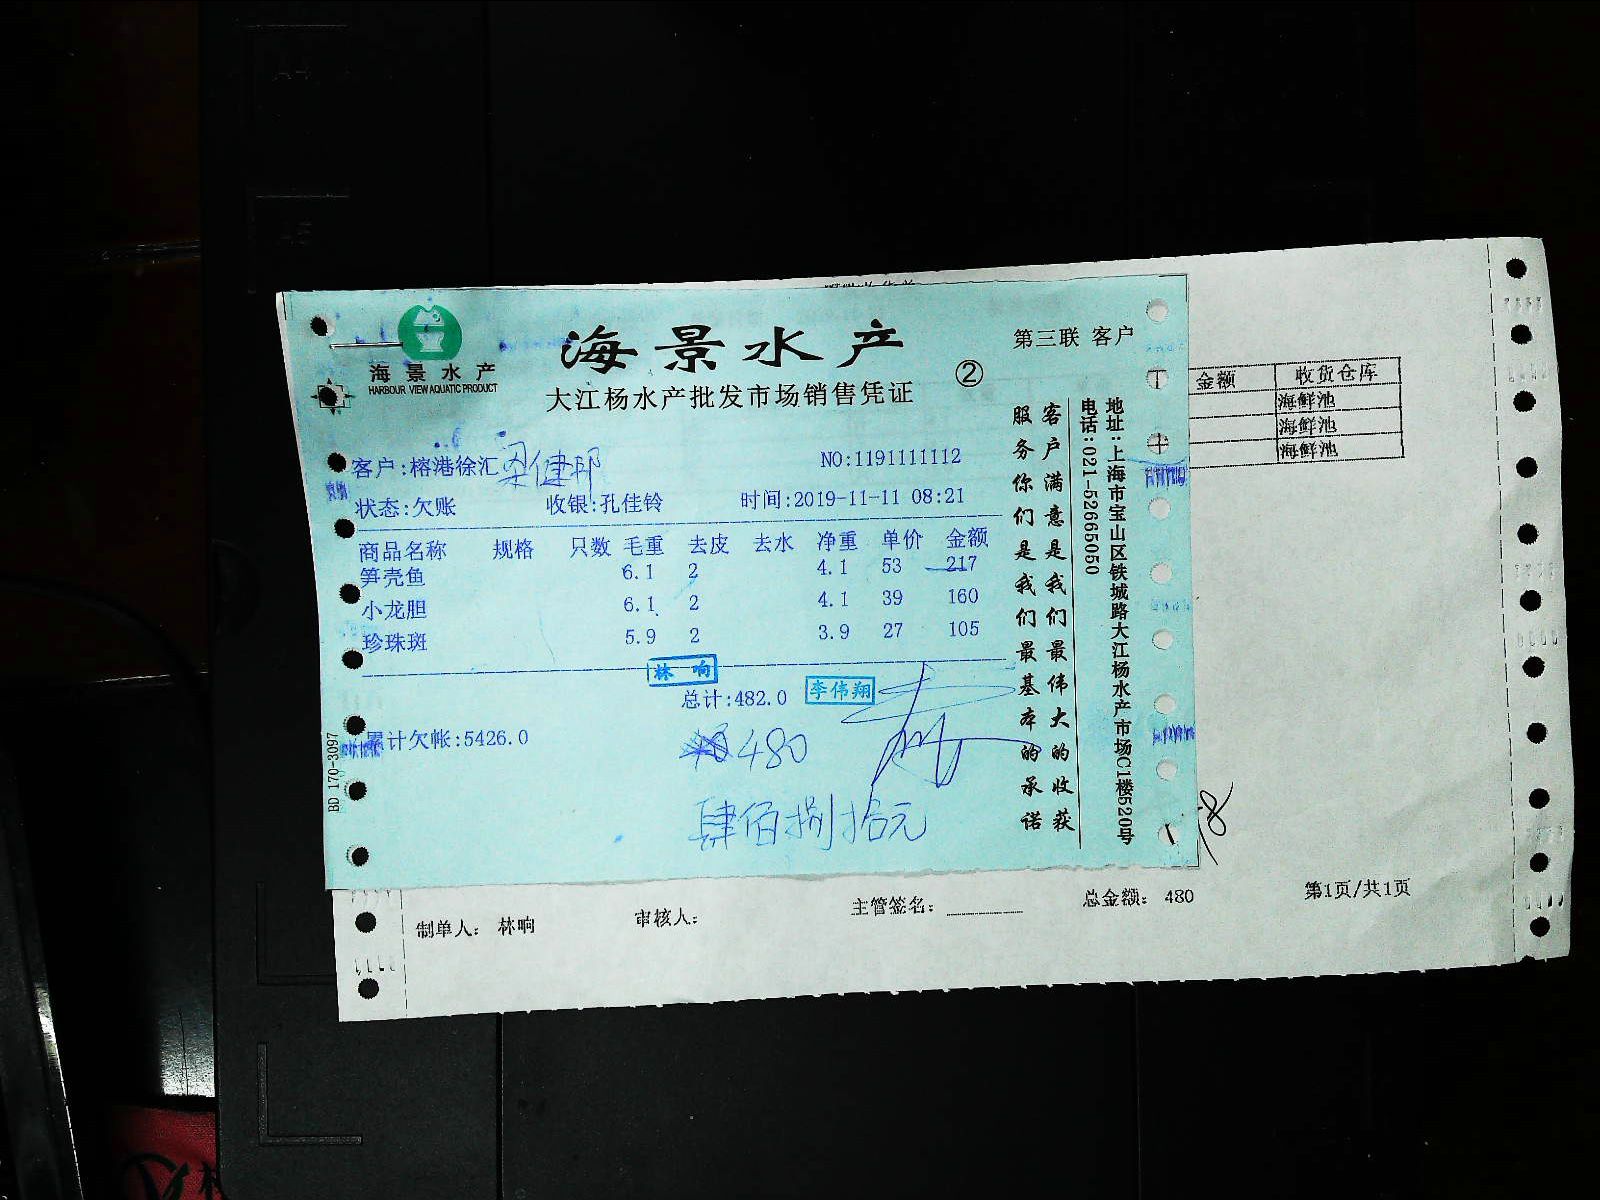 海景水产
HARBOUR VIEW AQUATIC PRODUCT
海景水产
大江杨水产批发市场销售凭证
②
第三联 客户
客户:榕港徐汇 梁健邦
NO:1191111112
状态:欠账 收银:孔佳铃 时间:2019-11-11 08:21
商品名称 规格 只数 毛重 去皮 去水 净重 单价 金额
笋壳鱼 6.1 2 4.1 53 217
小龙胆 6.1 2 4.1 39 160
珍珠斑 5.9 2 3.9 27 105
林响
总计:482.0
李伟翔
累计欠帐:5426.0
480
肆佰捌拾元
BD 170-3097
客户满意是我们最伟大的收获
服务你们是我们最基本的承诺
地址:上海市宝山区铁城路大江杨水产市场C1楼520号
电话:021-52665050
金额 收货仓库
海鲜池
海鲜池
海鲜池
制单人: 林响 审核人: 主管签名: 总金额: 480 第1页/共1页